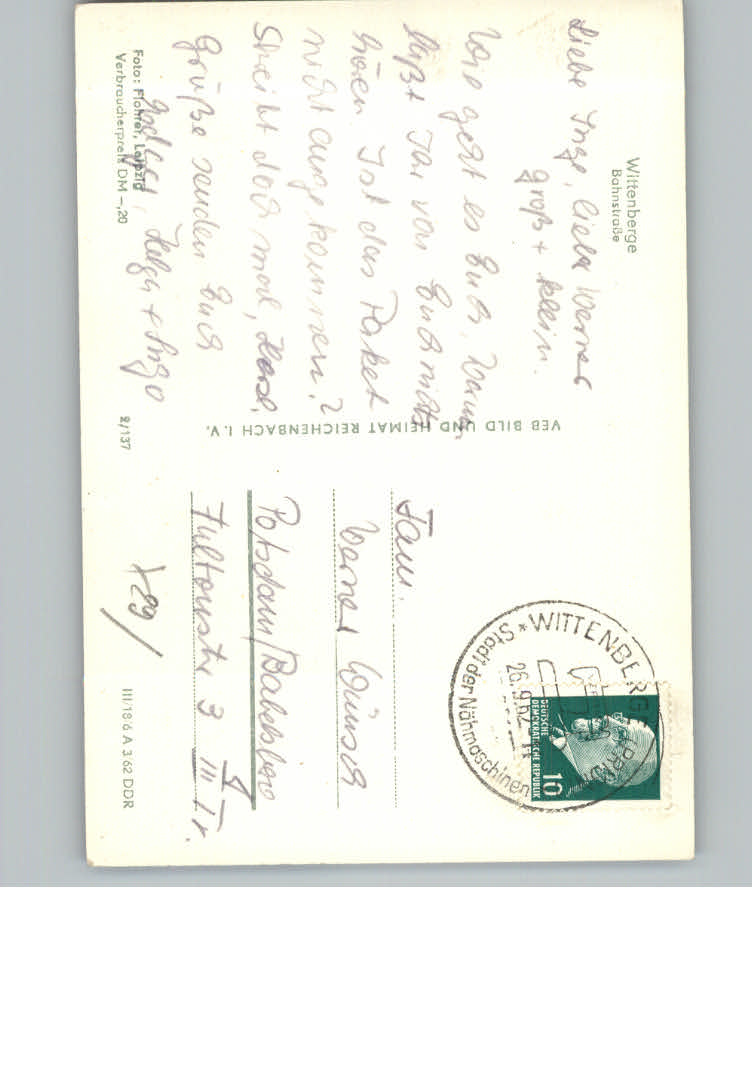 Wittenberge
Bahnstraße
Liebe Inge, lieber Werner
groß + klein.
Wie geht es Euch. Warum
laßt Ihr von Euch nichts
hören. Ist das Paket
nicht angekommen?
Schreibt doch mal,
Grüße senden Euch
Helga + Ingo
Foto: Flohrer, Leipzig
Verbraucherpreis DM -,20
VEB BILD UND HEIMAT REICHENBACH I. V.
2/137
Fam.
Werner Wünsch
Potsdam/Babelsberg
Fultonstr 3 III Tr.
III/18 6 A 3 62 DDR
* WITTENBERGE
Stadt der Nähmaschinen
26.9.62
DEUTSCHE
DEMOKRATISCHE REPUBLIK
10